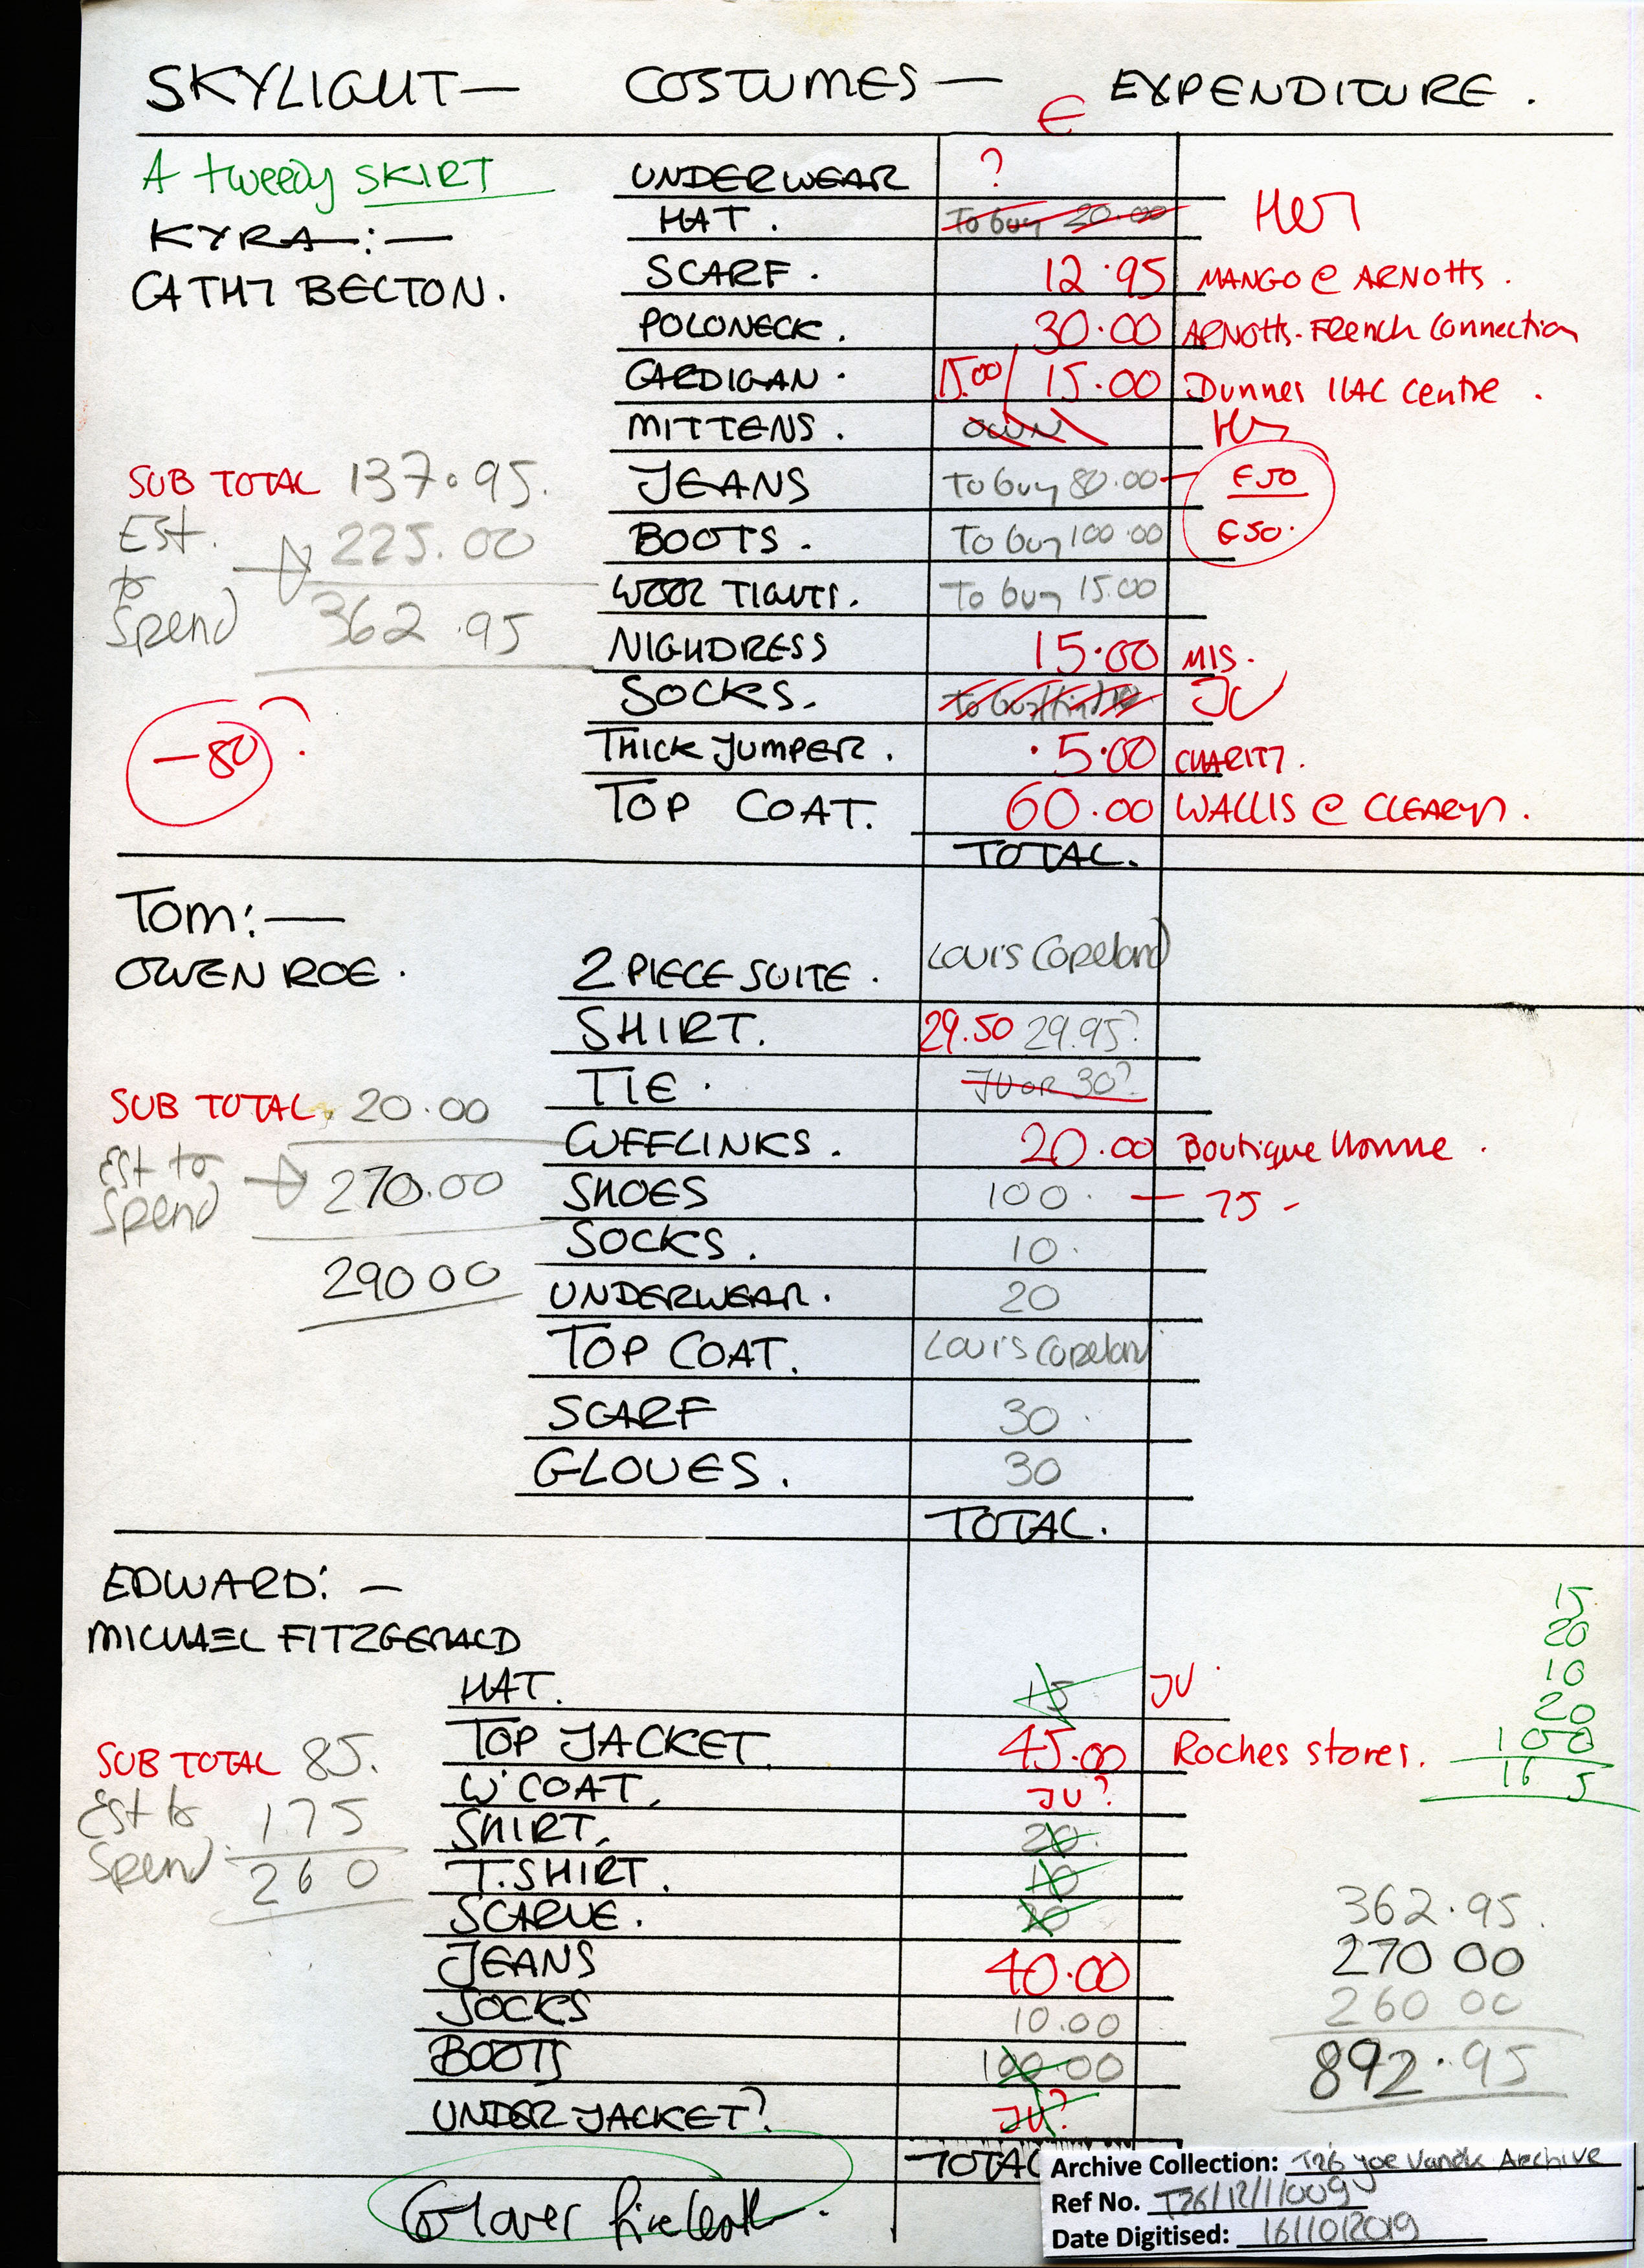 SKYLIGHT — COSTUMES — EXPENDITURE .
€
A tweedy SKIRT
KYRA :—
CATHY BECTON.
UNDERWEAR ?
HAT . To buy 20.00 HER
SCARF . 12.95 MANGO @ ARNOTTS .
POLONECK . 30.00 ARNOTTS - French Connection
CARDIGAN . 15.00/ 15.00 Dunnes ILAC Centre .
MITTENS . OWN
SUB TOTAL 137.95.
Est. to Spend 225.00
362.95
JEANS To buy 80.00 — €50
BOOTS . To buy 100.00 €50.
WOOL TIGHTS. To buy 15.00
NIGHDRESS 15.00 MIS.
SOCKS. To buy/find 10 JV
THICK JUMPER . 5.00 CHARITY.
TOP COAT. 60.00 WALLIS @ CLEARYS.
— 80 ?
TOTAL.
Tom:—
OWEN ROE .
2 PIECE SUITE . Louis Copeland
SHIRT. 29.50 29.95?
TIE . JV OR 30?
SUB TOTAL 20.00
Est to Spend 270.00
290 00
CUFFLINKS . 20.00 Boutique Homme .
SHOES 100. — 75 -
SOCKS . 10.
UNDERWEAR . 20
TOP COAT. Louis Copeland
SCARF 30 .
GLOVES . 30
TOTAL.
EDWARD: —
MICHAEL FITZGERALD
15
20
10
20
100
165
HAT. 15 JV
TOP JACKET. 45.00 Roches stores.
W'COAT. JV?
SHIRT. 20.
T.SHIRT. 10
SCARVE. 20
SUB TOTAL 85.
Est to Spend 175
260
JEANS 40.00
SOCKS 10.00
BOOTS 100.00
UNDER JACKET? JV?
362.95.
270 00
260 00
892.95
TOTAL
Archive Collection: T26 Joe Vanek Archive
Ref No. T26/12/1/009
Date Digitised: 16/10/2019